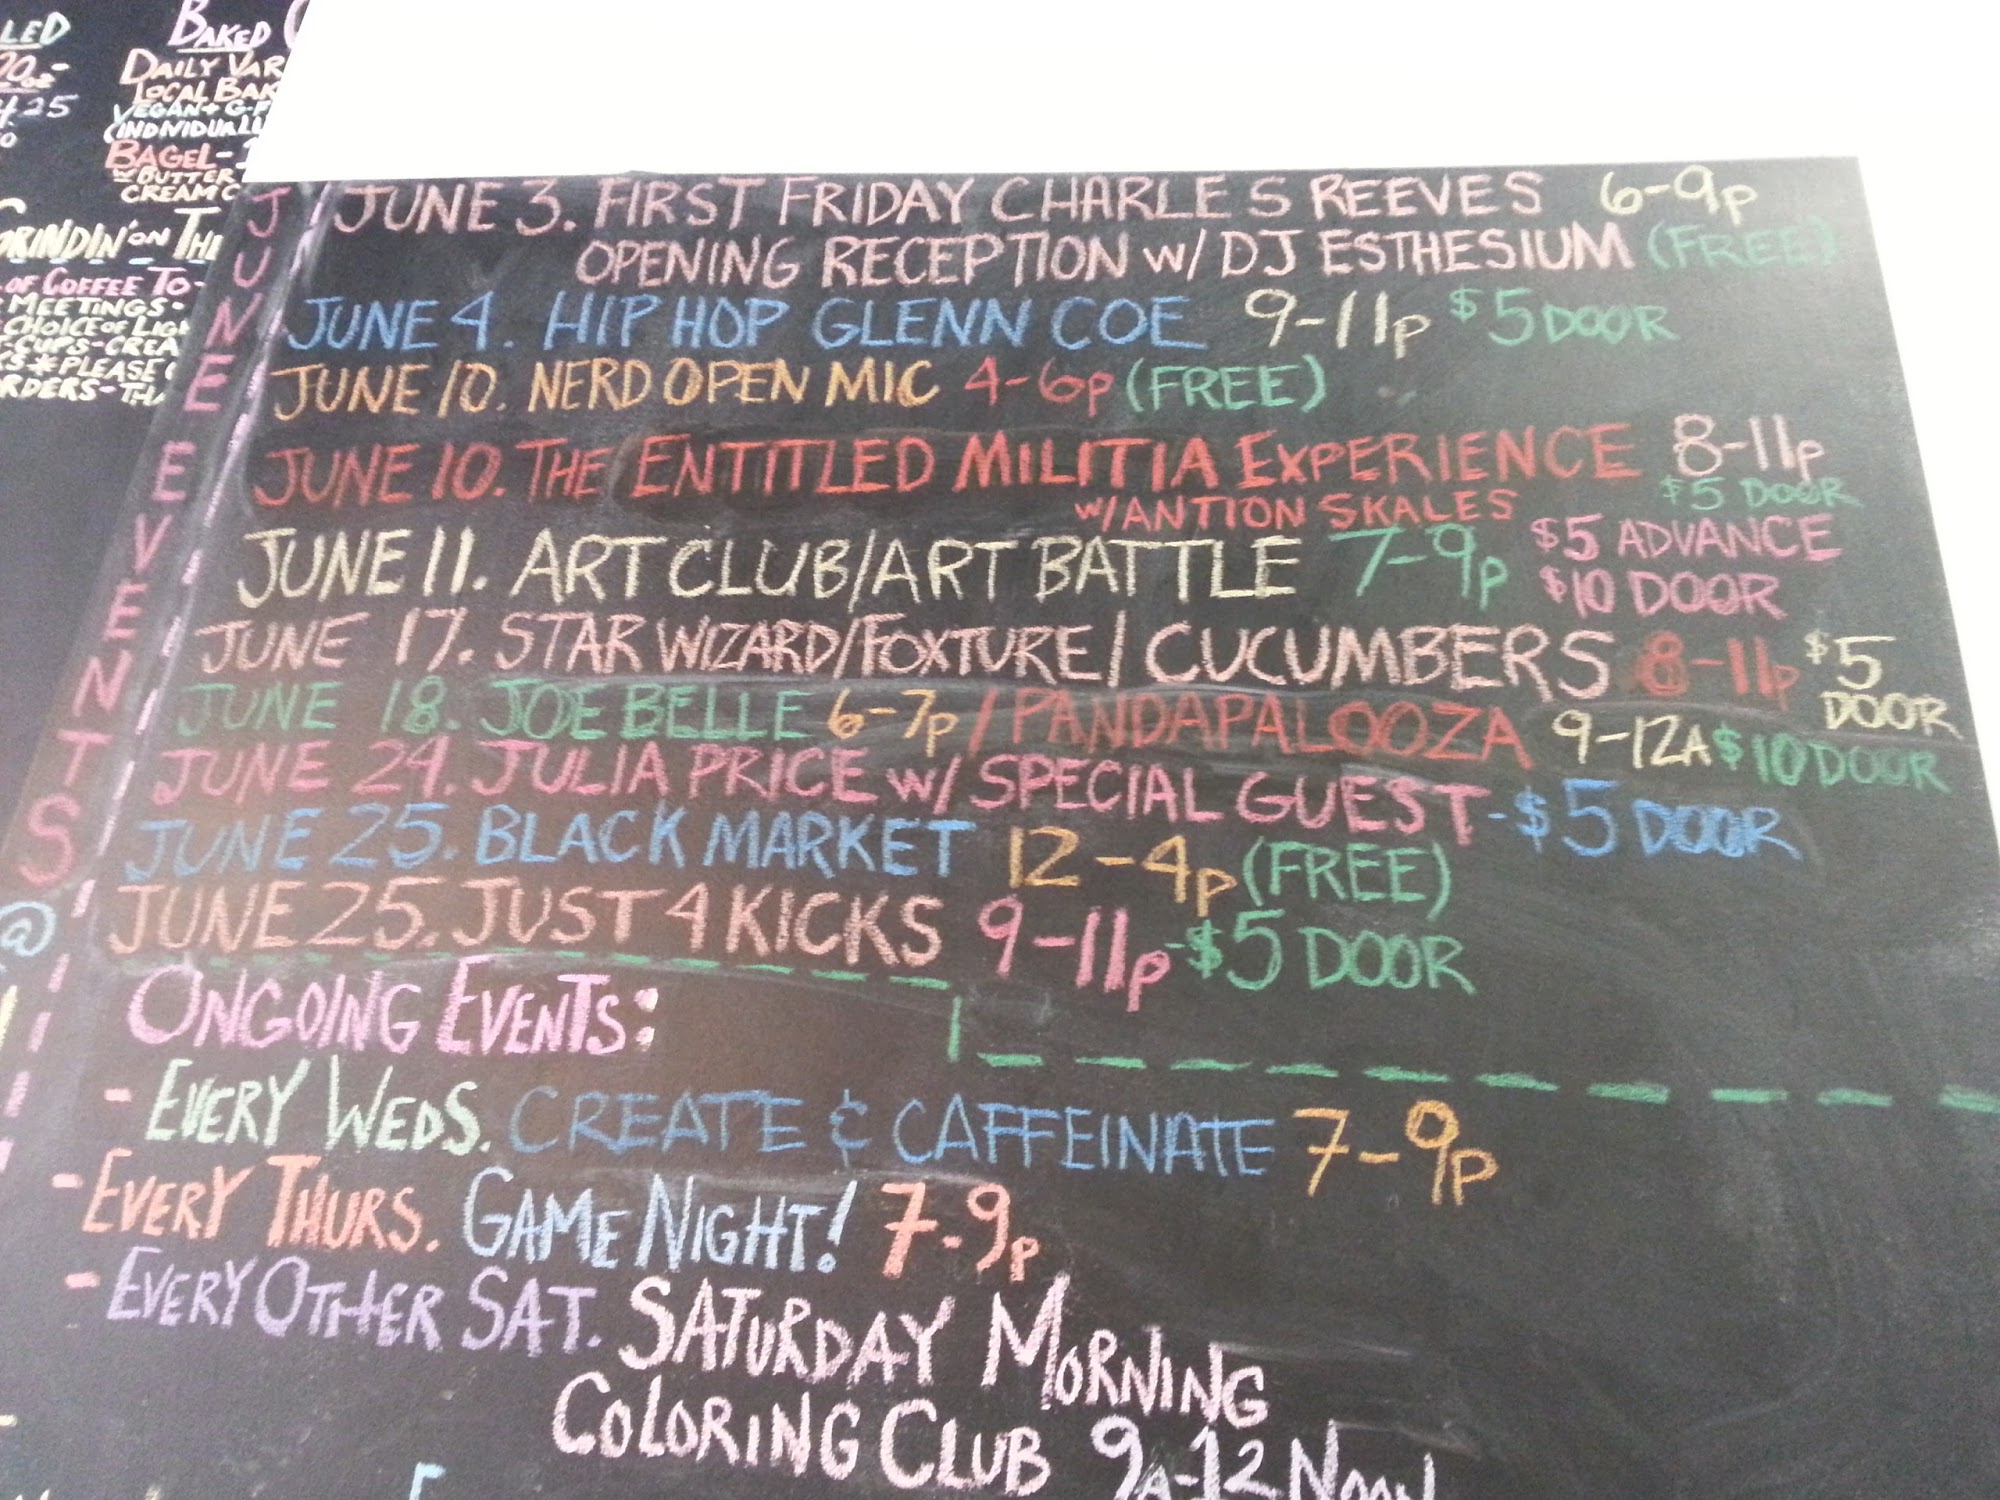 LED
20oz-
4.25
BAKED
DAILY
LOCAL
VEGAN + G-F
BAGEL-
W/BUTTER
CREAM
ON
OF COFFEE TO-
MEETINGS-
CHOICE OF
CUPS-
* PLEASE
JUNE EVENTS
@
JUNE 3. FIRST FRIDAY CHARLES REEVES 6-9p
OPENING RECEPTION W/ DJ ESTHESIUM (FREE)
JUNE 4. HIP HOP GLENN COE 9-11p $5 DOOR
JUNE 10. NERD OPEN MIC 4-6p (FREE)
JUNE 10. THE ENTITLED MILITIA EXPERIENCE 8-11p
W/ANTION SKALES $5 DOOR
JUNE 11. ART CLUB/ART BATTLE 7-9p $5 ADVANCE
$10 DOOR
JUNE 17. STAR WIZARD/FOXTURE/CUCUMBERS 8-11p $5
DOOR
JUNE 18. JOE BELLE 6-7p / PANDAPALOOZA 9-12A $10 DOOR
JUNE 24. JULIA PRICE W/ SPECIAL GUEST-$5 DOOR
JUNE 25. BLACK MARKET 12-4p (FREE)
JUNE 25. JUST 4 KICKS 9-11p-$5 DOOR
ONGOING EVENTS:
- EVERY WEDS. CREATE & CAFFEINATE 7-9p
- EVERY THURS. GAME NIGHT! 7-9p
- EVERY OTHER SAT. SATURDAY MORNING
COLORING CLUB 9A-12 NOON